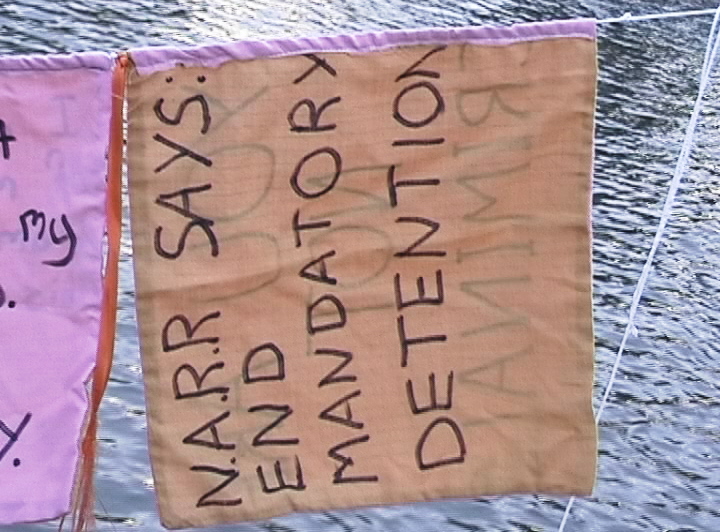 my
y.
N.A.R.R SAYS:
END
MANDATORY
DETENTION